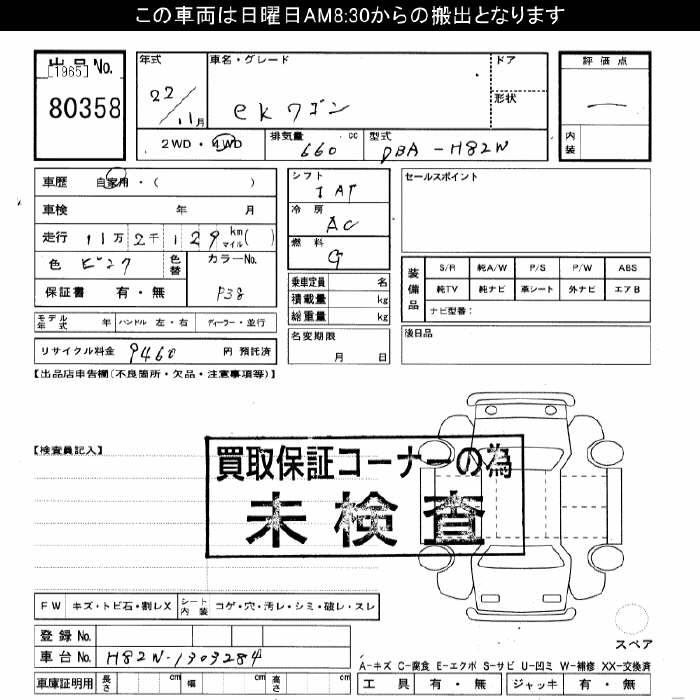 この車両は日曜日AM8:30からの搬出となります
出品No.
[1965]
80358
年式
22/11月
車名・グレード
ekワゴン
ドア
形状
評価点
内装
2WD・4WD
排気量
660 cc
型式
DBA-H82W
車歴 自家用・( )
車検 年 月
走行 11万2千129 km マイル( )
色 ピンク
色替
カラーNo.
P38
保証書 有・無
シフト
IAT
冷房
AC
燃料
G
乗車定員 名
積載量 kg
総重量 kg
セールスポイント
装備品
S/R 純A/W P/S P/W ABS
純TV 純ナビ 革シート 外ナビ エアB
ナビ型番:
モデル年式 年 ハンドル 左・右 ディーラー・並行
名変期限
月 日
後日品
リサイクル料金 9460 円 預託済
【出品店申告欄(不良箇所・欠品・注意事項等)】
【検査員記入】
買取保証コーナーの為
未検査
FW キズ・トビ石・割レX
シート内装 コゲ・穴・汚レ・シミ・破レ・スレ
スペア
登録No.
車台No. H82W-1303284
A-キズ C-腐食 E-エクボ S-サビ U-凹ミ W-補修 XX-交換済
車庫証明用 長さ cm 幅 cm 高さ cm
工具 有・無 ジャッキ 有・無